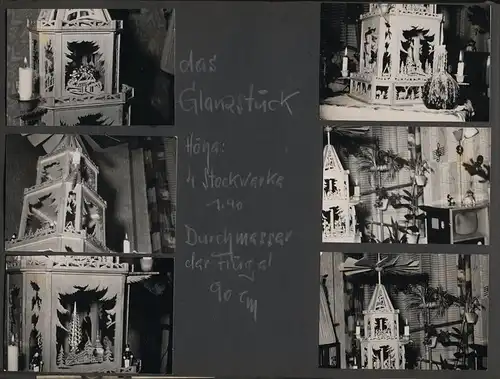 das
Glanzstück
Höhe:
4 Stockwerke
1.90
Durchmesser
der Flügel
90 cm